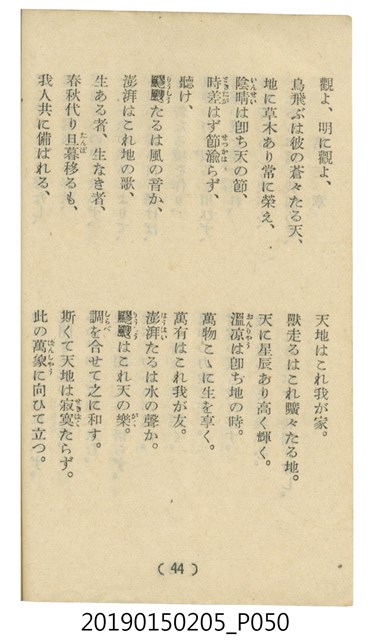 觀よ、明に觀よ、
天地はこれ我が家。
鳥飛ぶは彼の蒼々たる天、
獸走るはこれ曠々たる地。
地に草木あり常に榮え、
天に星辰あり高く輝く。
陰晴は卽ち天の節、
溫凉は卽ち地の時。
時差はず節渝らず、
萬物こゝに生を享く。
聽け、
萬有はこれ我が友。
飂飂たるは風の音か、
澎湃たるは水の聲か。
澎湃はこれ地の歌、
飂飂はこれ天の樂。
生ある者、生なき者、
調を合せて之に和す。
春秋代り旦暮移るも、
斯くて天地は寂寞たらず。
我人共に備ばれる、
此の萬象に向ひて立つ。
( 44 )
20190150205_P050